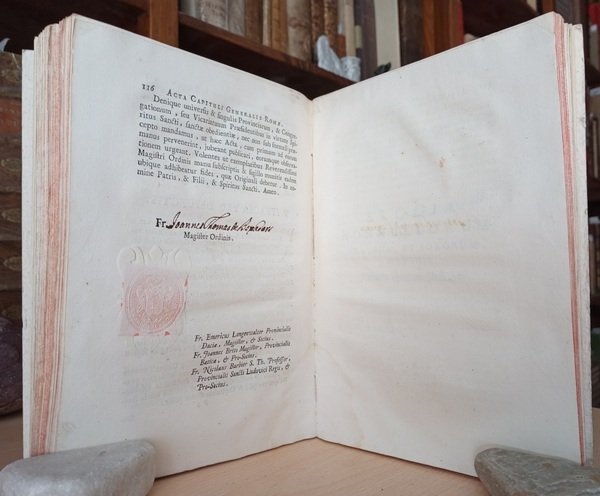 116 ACTA CAPITULI GENERALIS ROMÆ.
Denique universis & singulis Provinciarum, & Congre-
gationum, seu Vicariatuum Præsidentibus in virtute Spi-
ritus Sancti, sanctæ obedientiæ, nec non sub formali præ-
cepto mandamus, ut hæc Acta, cum primum ad eorum
manus pervenerint, jubeant publicari, eorumque observa-
tionem urgeant. Volentes ut exemplaribus Reverendissimi
Magistri Ordinis manu subscriptis & sigillo munitis eadem
ubique adhibeatur fides, quæ Originali debetur. In no-
mine Patris, & Filii, & Spiritus Sancti. Amen.
Fr. Joannes Thomas de
Magister Ordinis.
Fr. Emericus Langenwalter Provincialis
Daciæ, Magister, & Socius.
Fr. Joannes Brito Magister, Provincialis
Bæticæ, & Pro-Socius.
Fr. Nicolaus Barbier S. Th. Professor,
Provincialis Sancti Ludovici Regis, &
Pro-Socius.